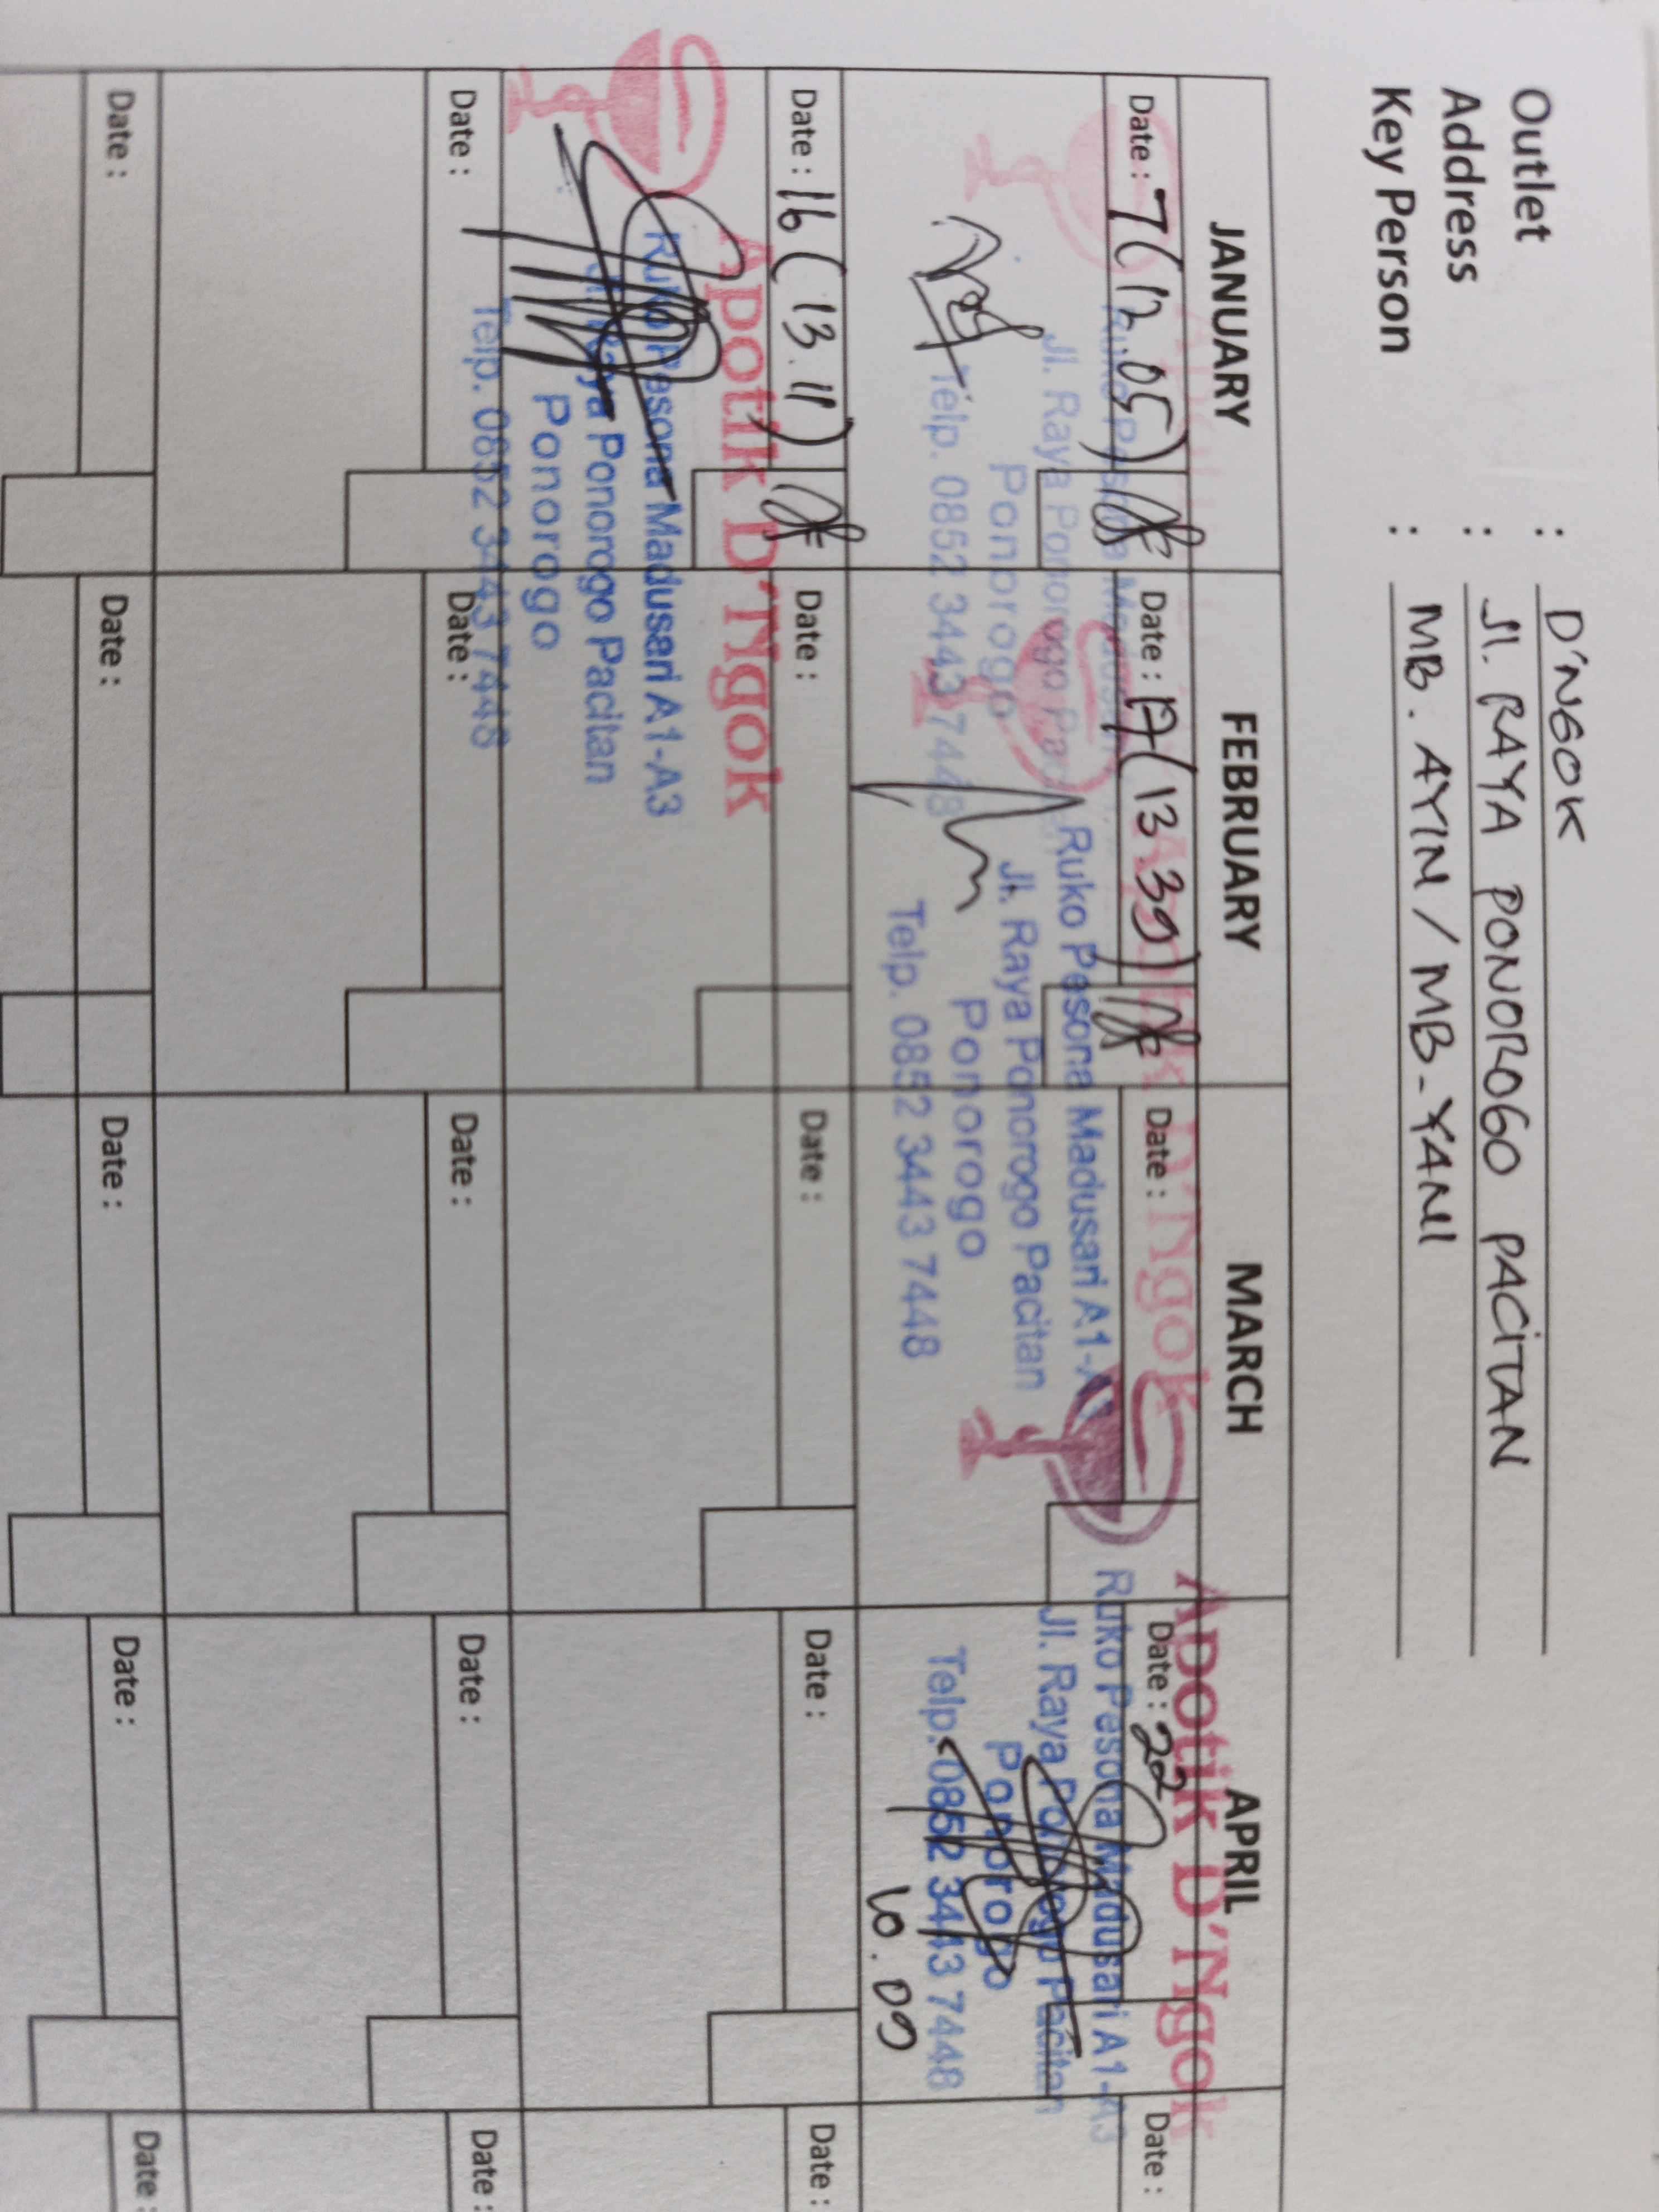 Outlet : D'NGOK
Address : Jl. RAYA PONOROGO PACITAN
Key Person : MB. AYIN / MB. YANI
JANUARY FEBRUARY MARCH APRIL
Date : 7 (12.05) Date : 19 (13.39) Date : Date : 22 Date :
Ruko Pesona Madusari
Jl. Raya Ponorogo Paci
Ponorogo
Telp. 0852 3443 7448
Apotik D'Ngok
Ruko Pesona Madusari A1-A3
Jl. Raya Ponorogo Pacitan
Ponorogo
Telp. 0852 3443 7448
Apotik D'Ngok
Ruko Pesona Madusari A1-A3
Jl. Raya Ponorogo Pacitan
Ponorogo
Telp. 0852 3443 7448
10.09
Date : 16 (13.11) Date : Date : Date : Date :
Apotik D'Ngok
Ruko Pesona Madusari A1-A3
Jl. Raya Ponorogo Pacitan
Ponorogo
Telp. 0852 3443 7448
Date : Date : Date : Date : Date :
Date : Date : Date : Date : Date :